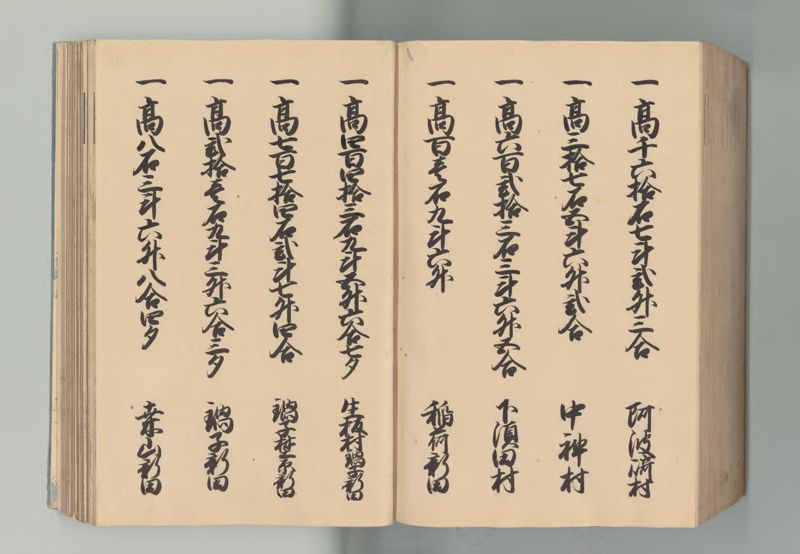 一 高千六拾石七斗弐升三合 阿波崎村
一 高三拾七石五斗六升弐合 中神村
一 高六百弐拾三石三斗六升五合 下須田村
一 高百壱石九斗六升 稲荷新田
一 高四百四拾三石九斗五升六合七夕 生板村鍋子新田
一 高七百七拾四石弐斗七升四合 新田
一 高弐拾壱石九斗三升六合三夕 鍋子新田
一 高八石三斗六升八合四夕 桑山新田